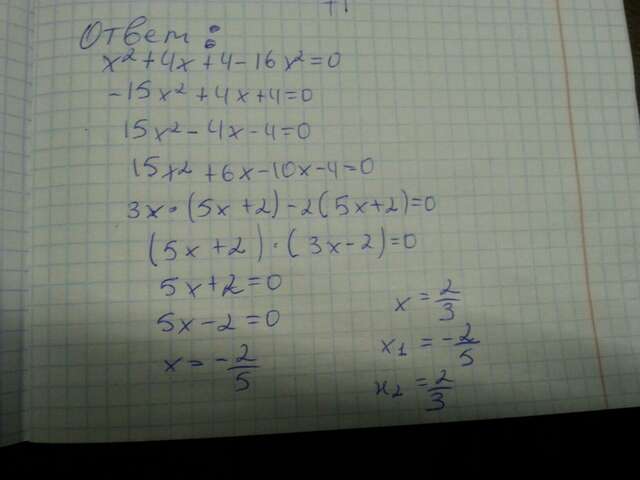 Ответ:
x² + 4x + 4 - 16x² = 0
-15x² + 4x + 4 = 0
15x² - 4x - 4 = 0
15x² + 6x - 10x - 4 = 0
3x · (5x + 2) - 2(5x + 2) = 0
(5x + 2) · (3x - 2) = 0
5x + 2 = 0
5x - 2 = 0
x = -2/5
x = 2/3
x₁ = -2/5
x₂ = 2/3